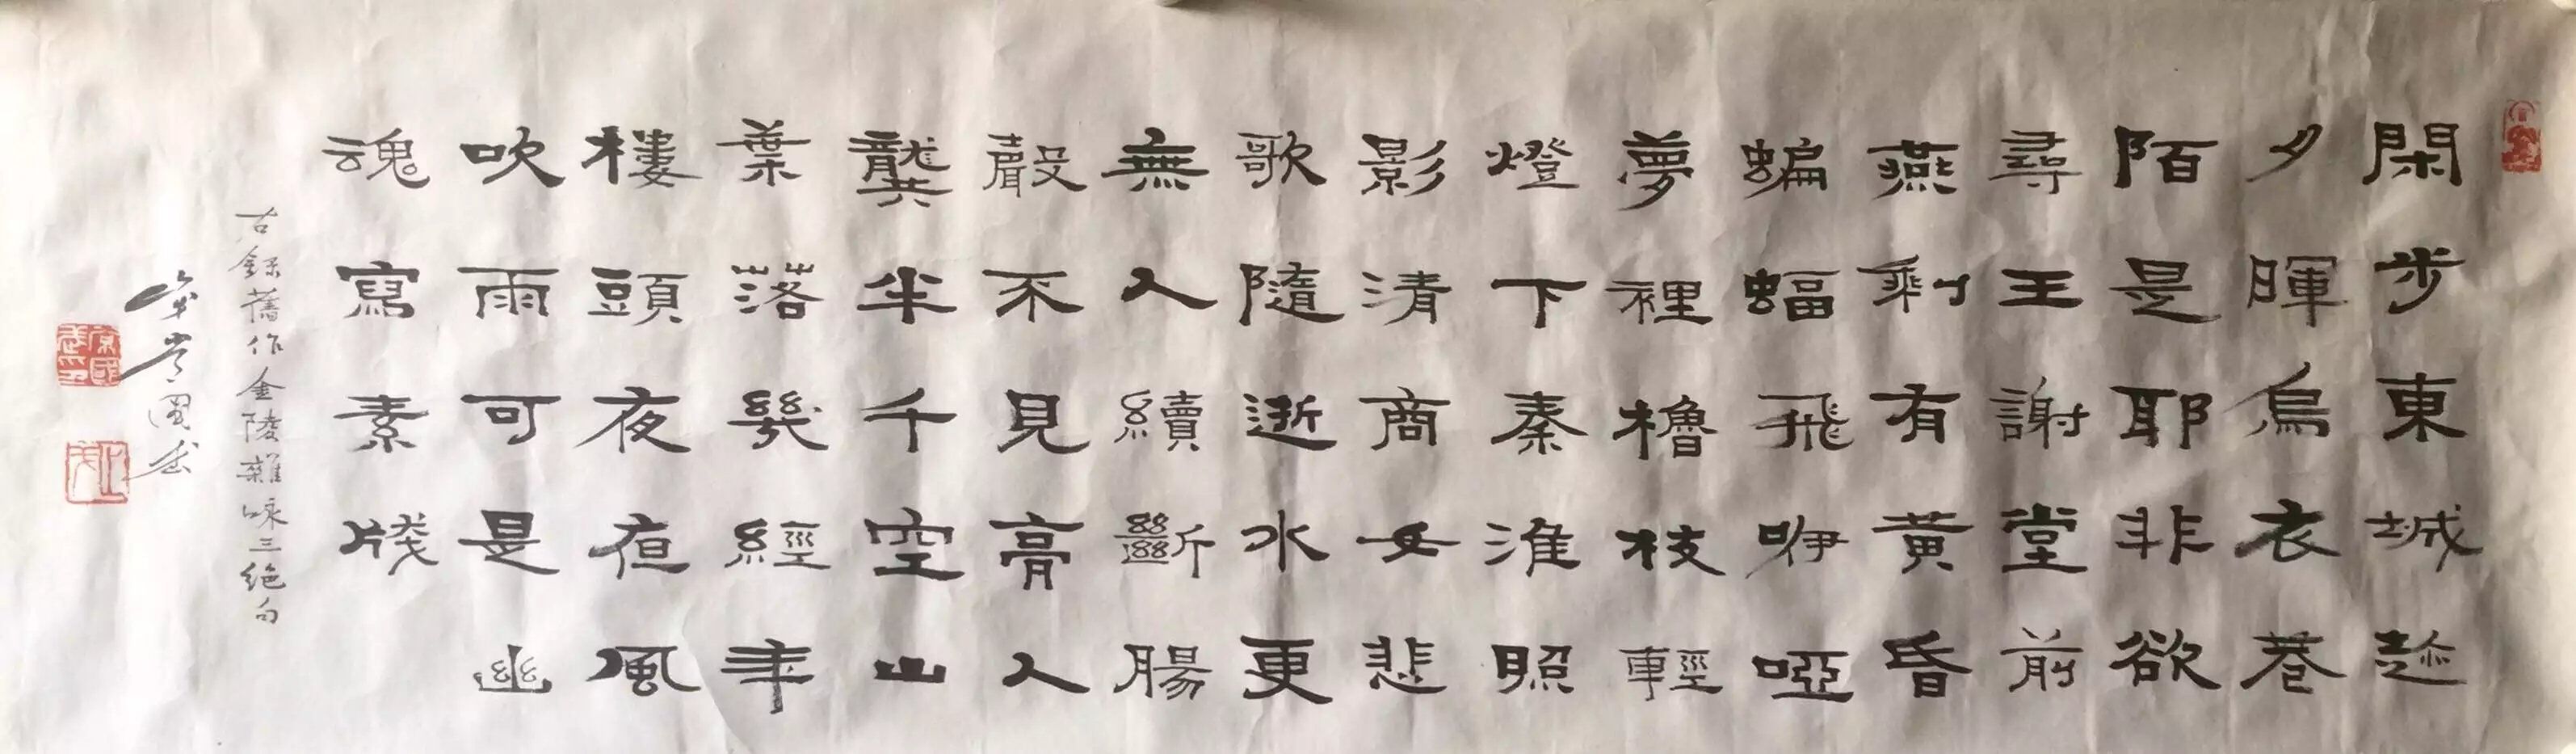 閑步東城趂
夕暉烏衣巷
陌是耶非欲
尋王謝堂前
燕剩有黃昏
蝙蝠飛咿啞
夢裡櫓枝輕
燈下秦淮照
影清商女悲
歌隨逝水更
無人續斷腸
聲不見高人
龔半千空山
葉落幾經年
樓頭夜夜風
吹雨可是幽
魂寫素牋
右錄舊作金陵雜咏三绝句